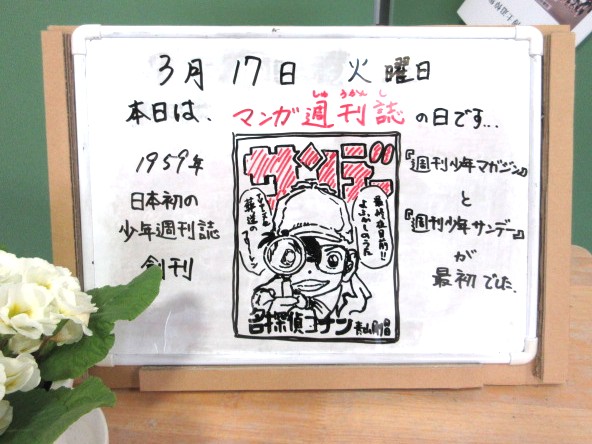 3月 17日 火曜日
本日は、マンガ週刊誌の日です...
しゅうかんし
1959年
日本初の
少年週刊誌
創刊
サンデー
最終夜目前!!
よふかしのうた
葬送の
フリーレン
名探偵コナン 青山剛昌
『週刊少年マガジン』
と
『週刊少年サンデー』
が
最初でした.